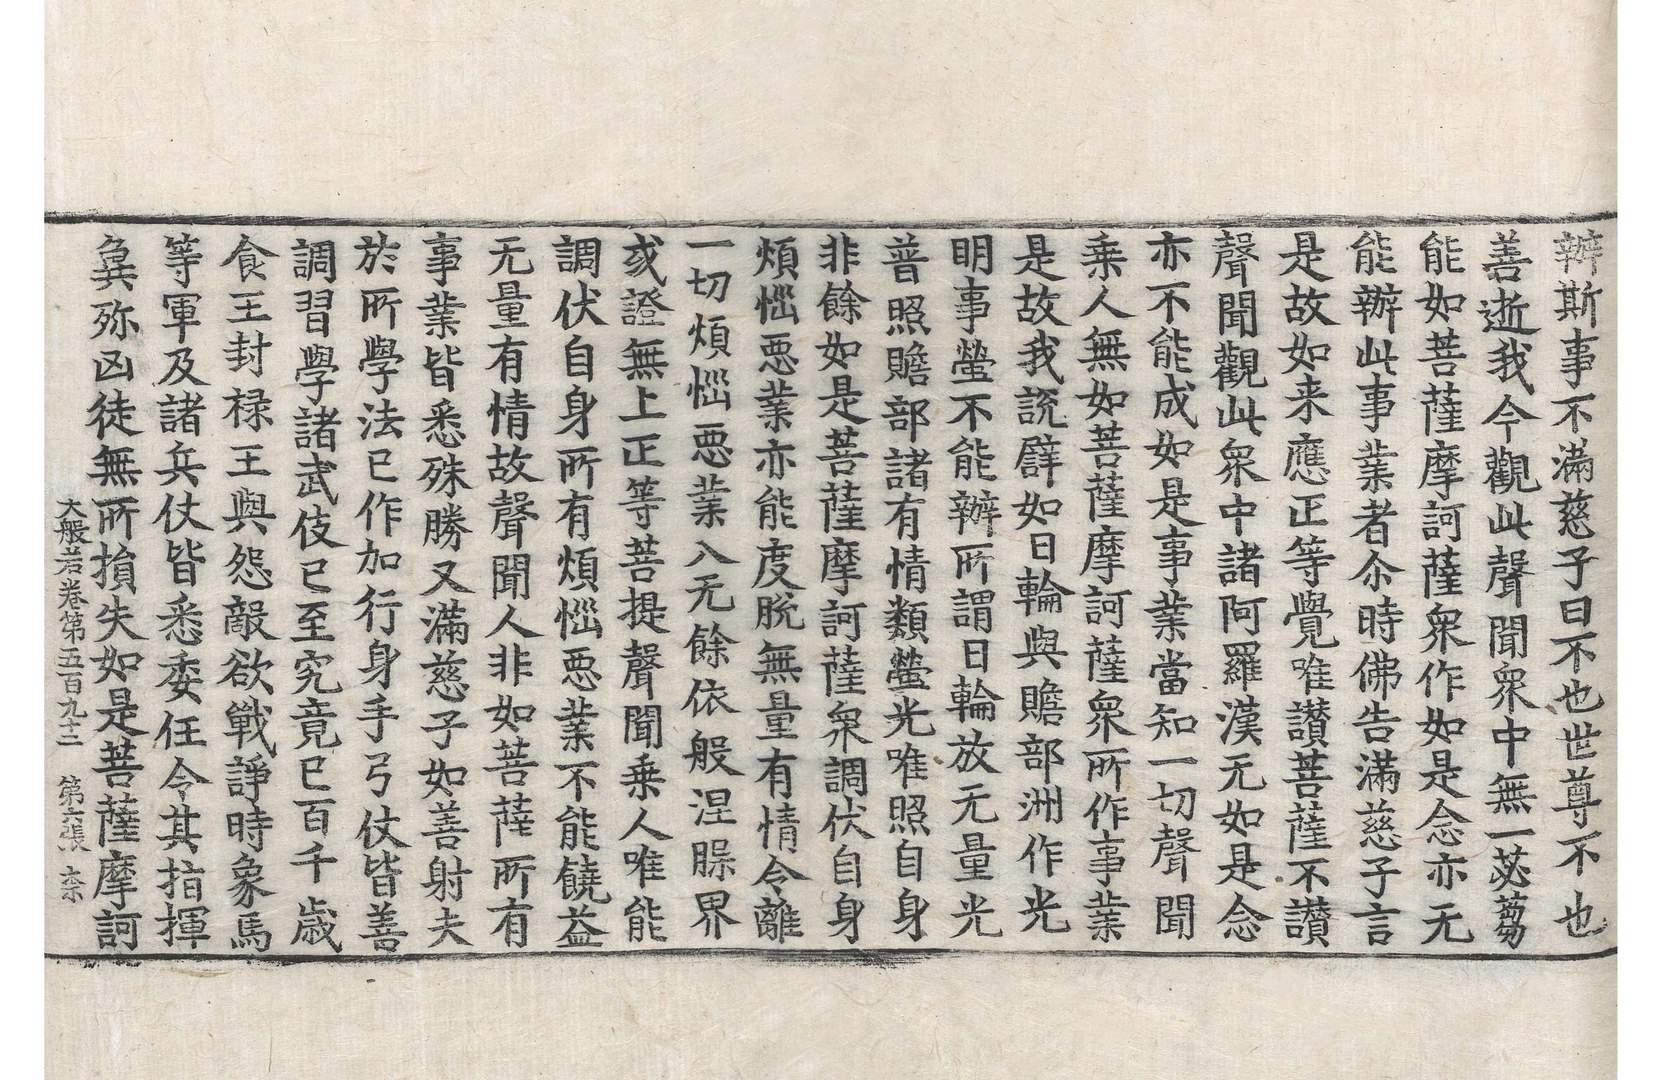 辦斯事不滿慈子曰不也世尊不也
善逝我今觀此聲聞衆中無一苾芻
能如菩薩摩訶薩衆作如是念亦无
能辦此事業者尒時佛告滿慈子言
是故如来應正等覺唯讚菩薩不讚
聲聞觀此衆中諸阿羅漢无如是念
亦不能成如是事業當知一切聲聞
乗人無如菩薩摩訶薩衆所作事業
是故我說譬如日輪與贍部洲作光
明事螢不能辦所謂日輪放无量光
普照贍部諸有情類螢光唯照自身
非餘如是菩薩摩訶薩衆調伏自身
煩惱惡業亦能度脫無量有情令離
一切煩惱惡業入无餘依般涅槃界
或證無上正等菩提聲聞乗人唯能
調伏自身所有煩惱惡業不能饒益
无量有情故聲聞人非如菩薩所有
事業皆悉殊勝又滿慈子如善射夫
於所學法已作加行身手弓仗皆善
調習學諸武伎已至究竟已百千歲
食王封禄王與怨敵欲戰諍時象馬
等軍及諸兵仗皆悉委任令其指揮
兾殄凶徒無所損失如是菩薩摩訶
大般若卷第五百九十二 第六張 柰